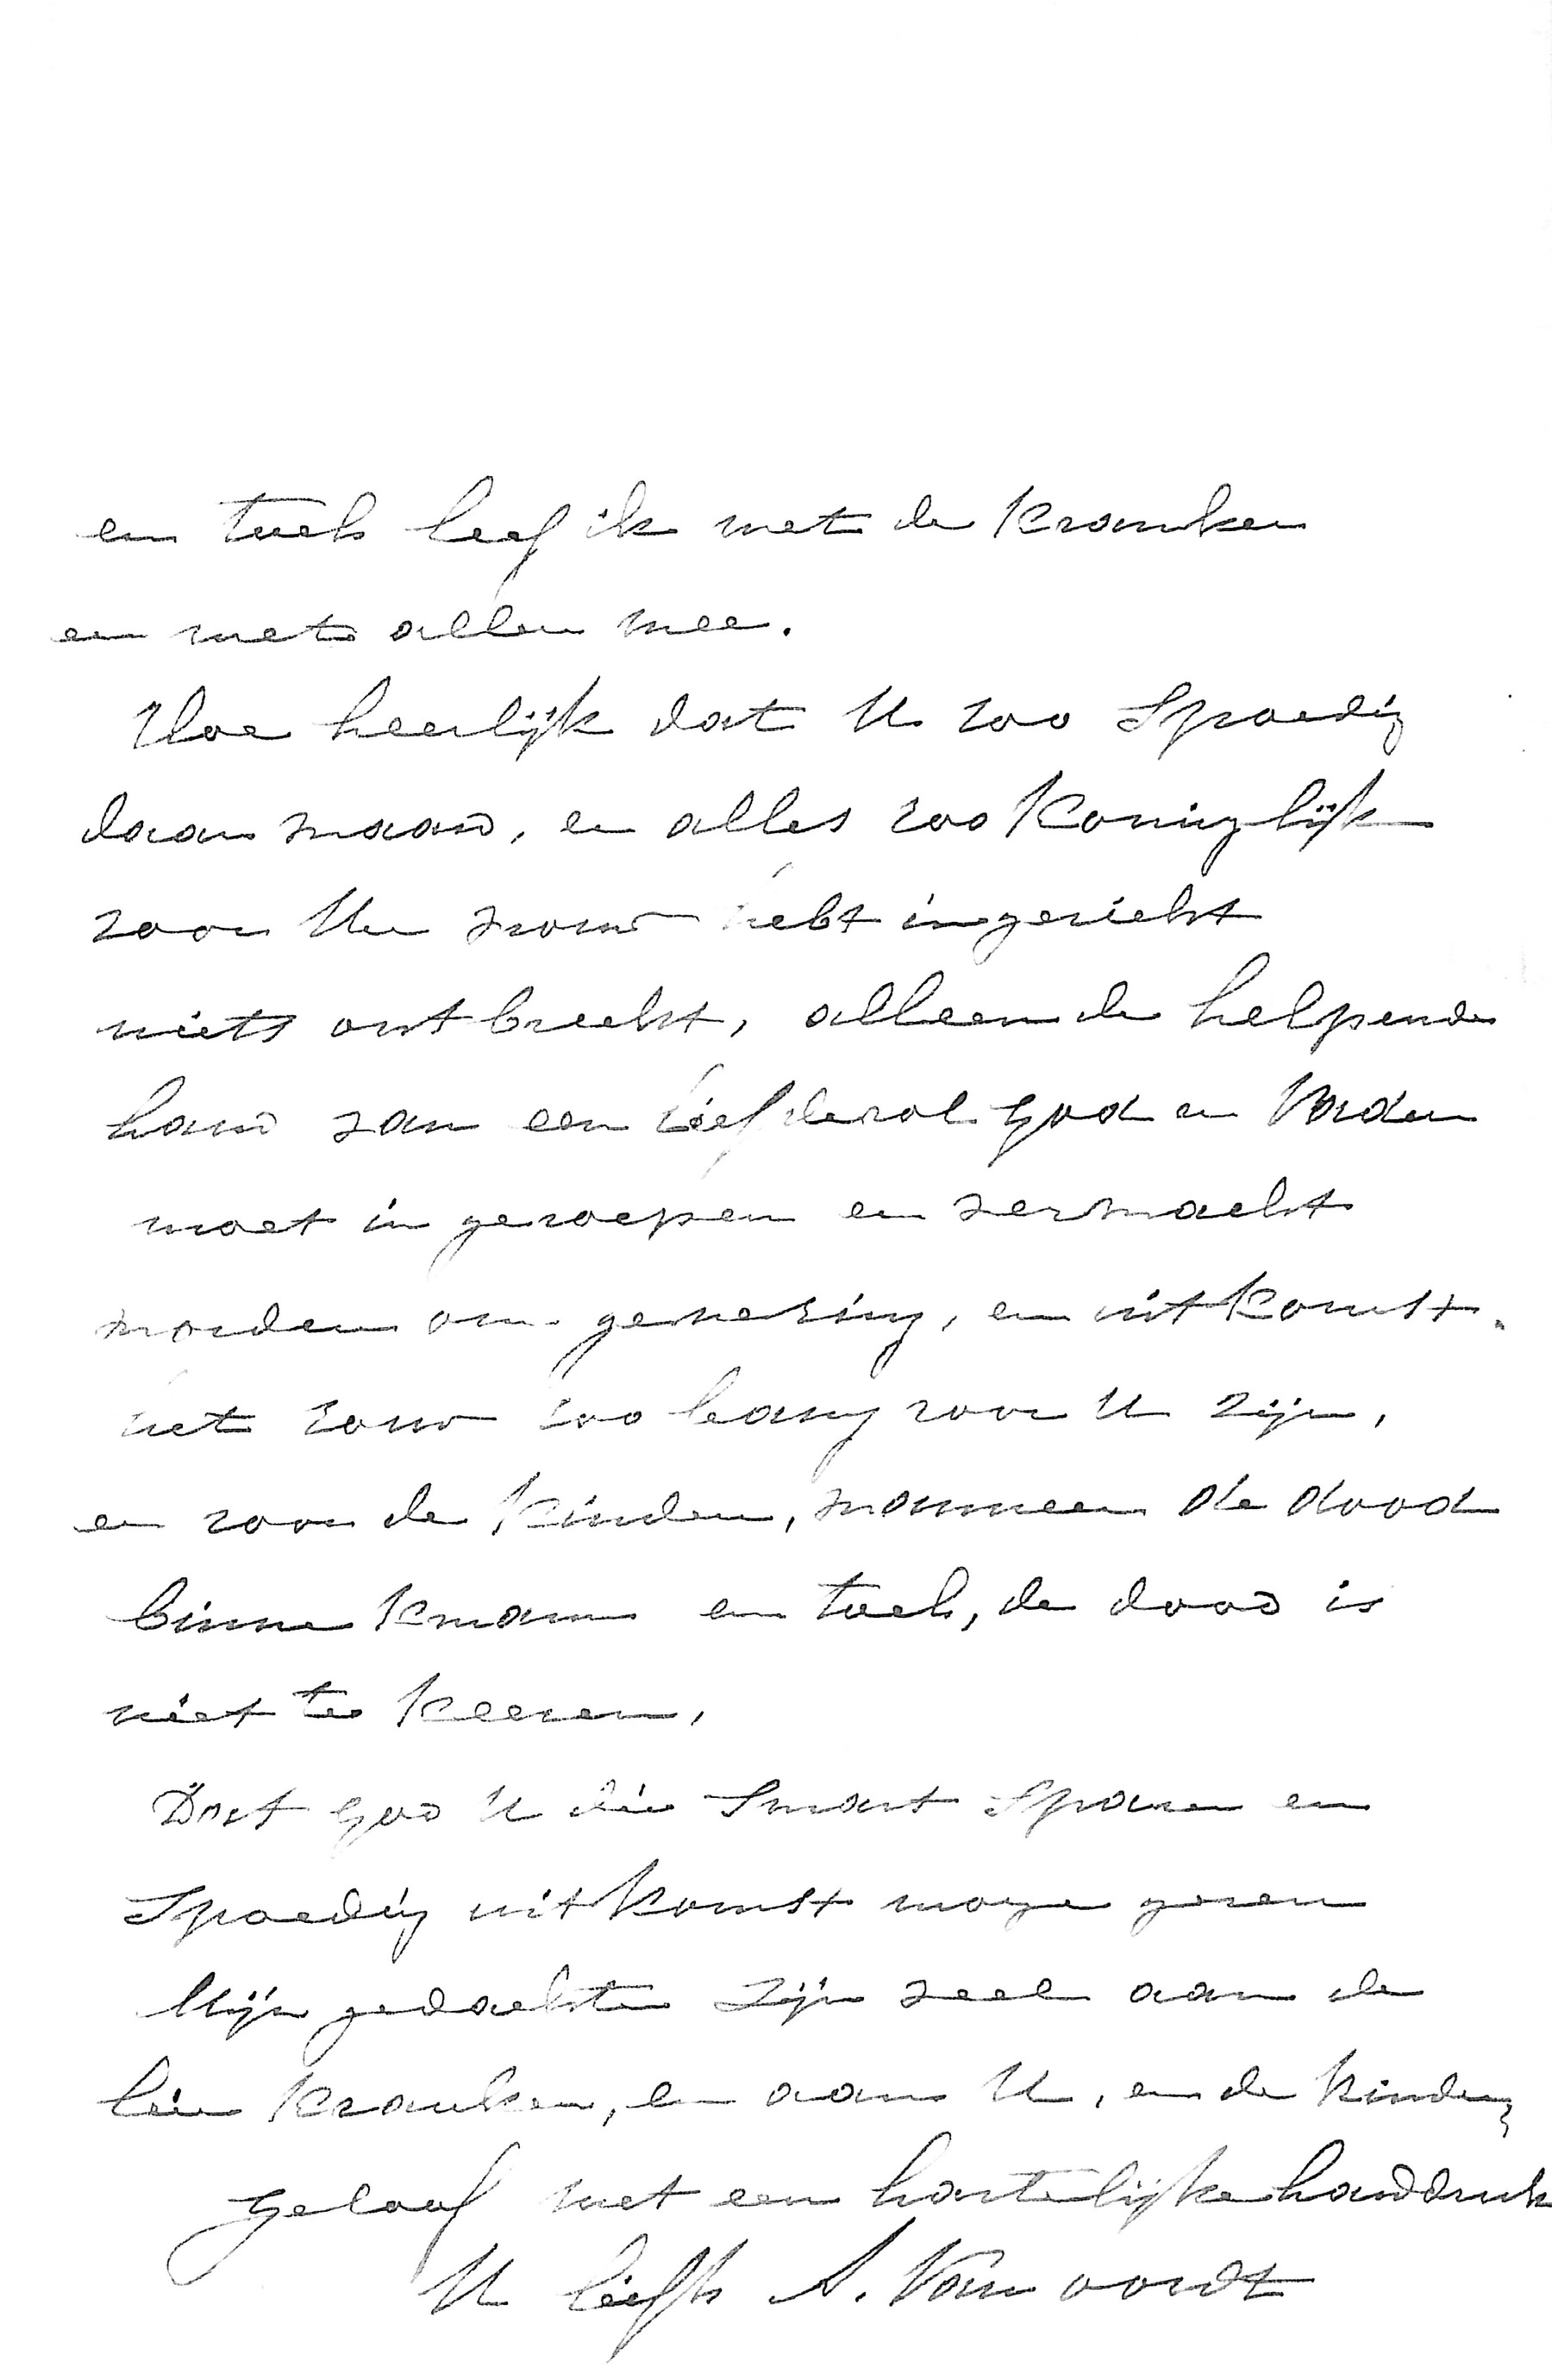 en toch leef ik met de kranken
en met allen mee.
Hoe heerlijk dat U zoo Spoedig
daar waard, en alles zoo Koninglijk
voor Uw vrouw hebt ingericht
niets ontbreekt, alleen de helpende
hand van een liefdevol God en Vader
moet in geroepen en verwacht
worden om genezing, en uitkomst.
het zouw zoo bang voor U zijn,
en voor de Kinderen, wanneer de dood
binne kwam en toch, de dood is
niet te keeren,
Dat God U die Smart Sparen en
Spoedig uitkomst moge geven
Mijn gedachten zijn veel aan de
lieve kranken, en aan U, en de Kinderen,
geloof met een hartelijke handdruk
U liefh A. Van Oordt